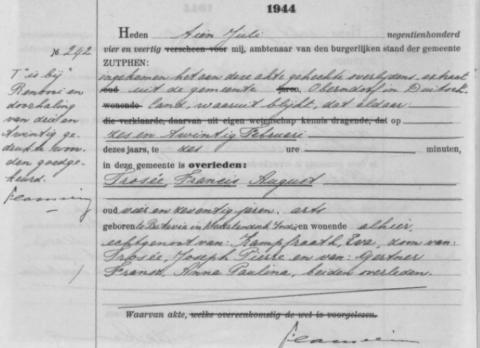 1944
Heden tien Juli negentienhonderd
No 242
vier en veertig verscheen voor mij, ambtenaar van den burgerlijken stand der gemeente
ZUTPHEN:
ingekomen het aan deze akte gehechte overlijdens extract
oud uit de gemeente jaren, Oberndorf in Duitsch-
wonende land, waaruit blijkt, dat aldaar
die verklaarde, daarvan uit eigen wetenschap kennis dragende, dat op
zes en twintig Februari
dezes jaars, te zes ure minuten,
in deze gemeente is overleden:
Trosée, Francis August
oud vier en zeventig jaren, arts
geboren te Batavia in Nederlandsch Indië en wonende alhier,
echtgenoot van: Kampfraath, Eva, zoon van:
Trosée, Joseph Pierre en van: Gertner
Anna Paulina, beiden overleden.
Waarvan akte, welke overeenkomstig de wet is voorgelezen.
T is bij
Renvooi en
doorhaling
van drie en
twintig ge-
drukte woor-
den goedge-
keurd.